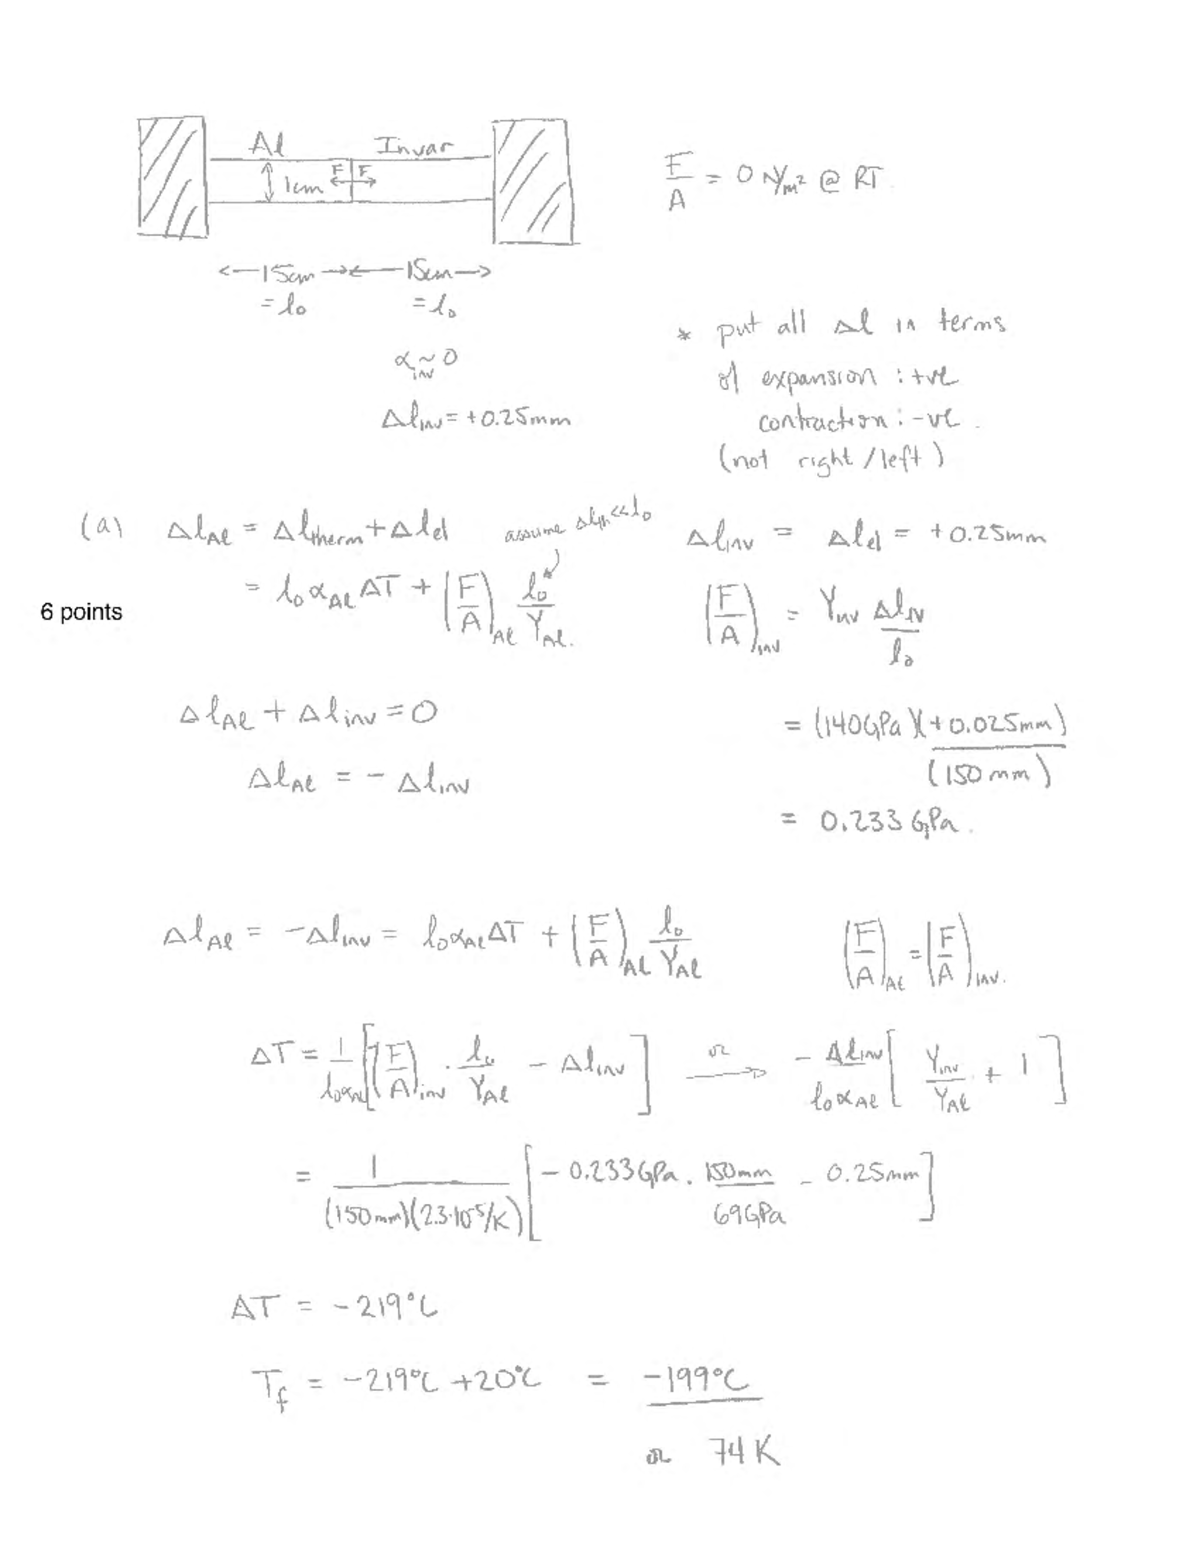 Al Invar
F F
1cm
F/A = 0 N/m² @ RT
←15cm→←15cm→
= l₀ = l₀
α_inv ~ 0
Δl_inv = +0.25mm
* put all Δl in terms
of expansion : +ve
contraction : -ve.
(not right/left)
(a) Δl_Al = Δl_therm + Δl_el
assume Δl_th << l₀
= l₀ α_Al ΔT + (F/A)_Al l₀/Y_Al.
6 points
Δl_Al + Δl_inv = 0
Δl_Al = - Δl_inv
Δl_inv = Δl_el = +0.25mm
(F/A)_inv = Y_inv Δl_inv/l₀
= (140GPa)(+0.025mm)/(150mm)
= 0.233 GPa.
Δl_Al = -Δl_inv = l₀α_AlΔT + (F/A)_Al l₀/Y_Al
(F/A)_Al = (F/A)_inv.
ΔT = 1/l₀α_Al [(F/A)_inv · l₀/Y_Al - Δl_inv] or → - Δl_inv/l₀α_Al [Y_inv/Y_Al + 1]
= 1/(150mm)(2.3·10⁻⁵/K) [- 0.233GPa · 150mm/69GPa - 0.25mm]
ΔT = -219°C
T_f = -219°C +20°C = -199°C
or 74K